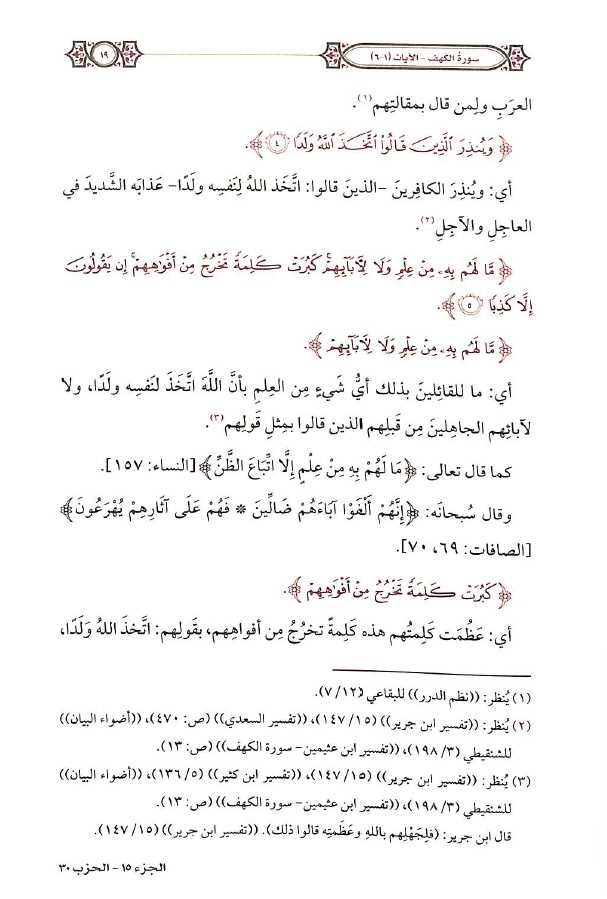 سورة الكهف - الآيات (١-٦)
١٩
العرَبِ ولِمن قال بمقالتِهم(١).
﴿وَيُنذِرَ ٱلَّذِينَ قَالُواْ ٱتَّخَذَ ٱللَّهُ وَلَدٗا ٤﴾.
أي: ويُنذِرَ الكافِرينَ -الذينَ قالوا: اتَّخَذ اللهُ لِنَفسِه ولدًا- عَذابَه الشَّديدَ في
العاجِلِ والآجِلِ(٢).
﴿مَّا لَهُم بِهِۦ مِنۡ عِلۡمٖ وَلَا لِأٓبَآئِهِمۡۚ كَبُرَتۡ كَلِمَةٗ تَخۡرُجُ مِنۡ أَفۡوَٰهِهِمۡۚ إِن يَقُولُونَ
إِلَّا كَذِبٗا ٥﴾.
﴿مَّا لَهُم بِهِۦ مِنۡ عِلۡمٖ وَلَا لِأٓبَآئِهِمۡ﴾.
أي: ما للقائِلينَ بذلك أيُّ شَيءٍ مِن العِلمِ بأنَّ اللَّهَ اتَّخَذَ لنَفسِه ولَدًا، ولا
لآبائِهم الجاهِلينَ مِن قَبلِهم الذين قالوا بمِثلِ قَولِهم(٣).
كما قال تعالى: ﴿مَا لَهُمْ بِهِ مِنْ عِلْمٍ إِلَّا اتِّبَاعَ الظَّنِّ﴾ [النساء: ١٥٧].
وقال سُبحانَه: ﴿إِنَّهُمْ أَلْفَوْا آبَاءَهُمْ ضَالِّينَ * فَهُمْ عَلَى آثَارِهِمْ يُهْرَعُونَ﴾
[الصافات: ٦٩، ٧٠].
﴿كَبُرَتۡ كَلِمَةٗ تَخۡرُجُ مِنۡ أَفۡوَٰهِهِمۡ﴾.
أي: عَظُمَت كَلِمتُهم هذه كَلِمةً تخرُجُ مِن أفواهِهم، بقَولِهم: اتَّخذَ اللهُ وَلَدًا،
(١) يُنظر: ((نظم الدرر)) للبقاعي (٧/١٢).
(٢) يُنظر: ((تفسير ابن جرير)) (١٤٧/١٥)، ((تفسير السعدي)) (ص: ٤٧٠)، ((أضواء البيان))
للشنقيطي (١٩٨/٣)، ((تفسير ابن عثيمين- سورة الكهف)) (ص: ١٣).
(٣) يُنظر: ((تفسير ابن جرير)) (١٤٧/١٥)، ((تفسير ابن كثير)) (١٣٦/٥)، ((أضواء البيان))
للشنقيطي (١٩٨/٣)، ((تفسير ابن عثيمين- سورة الكهف)) (ص: ١٣).
قال ابن جرير: (فلِجَهْلِهم باللهِ وعَظَمتِه قالوا ذلك). ((تفسير ابن جرير)) (١٤٧/١٥).
الجزء ١٥ - الحزب ٣٠